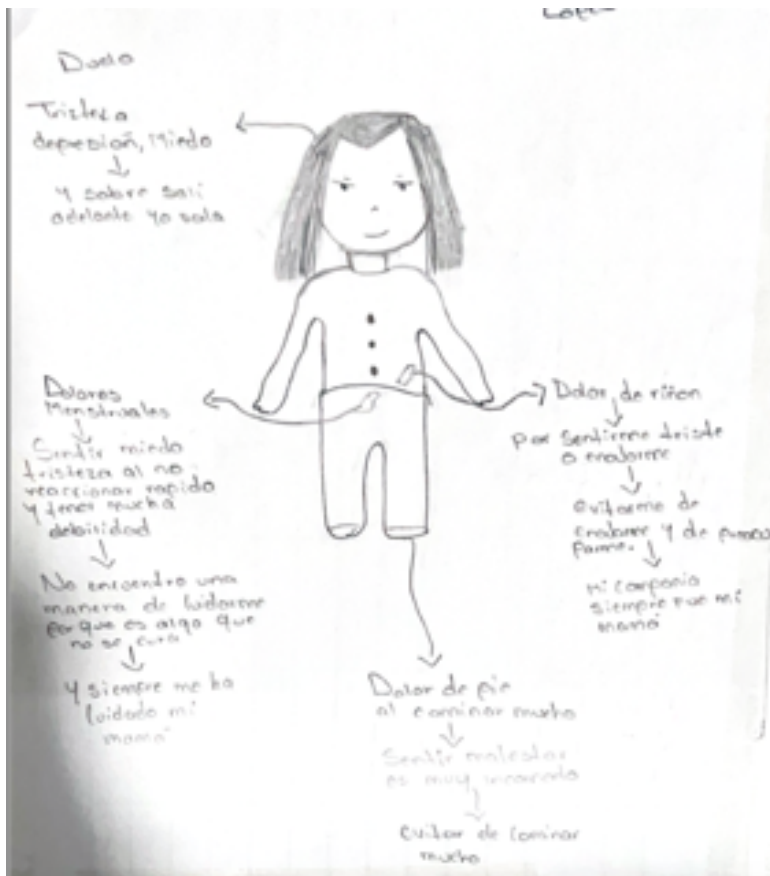 Duelo
Tristeza
depresión, Miedo
Y sobre sali
adelante yo sola
Dolores
Menstruales
Sentir miedo
tristeza al no
reaccionar rapido
Y tener mucha
debilidad
No encuentro una
manera de cuidarme
porque es algo que
no se cura
Y siempre me ha
cuidado mi
mamá
Dolor de riñon
por sentirme triste
o enojarme
evitarme de
enojarme y de
mi compania
siempre fue mi
mamá
Dolor de pie
al caminar mucho
Sentir malestar
es muy incomodo
evitar de caminar
mucho